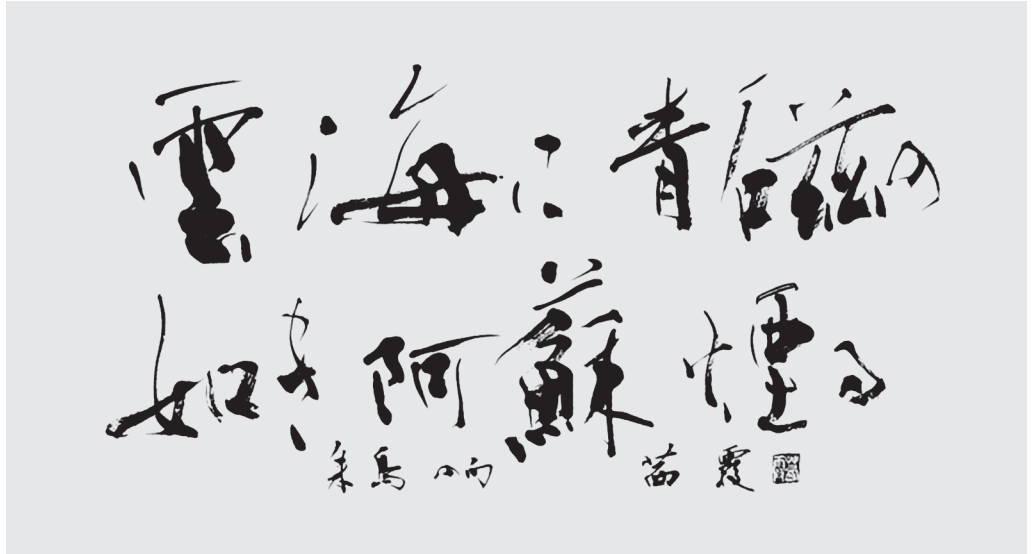 雲海に青磁の
如き阿蘇煙る
朱鳥の句 茜霞